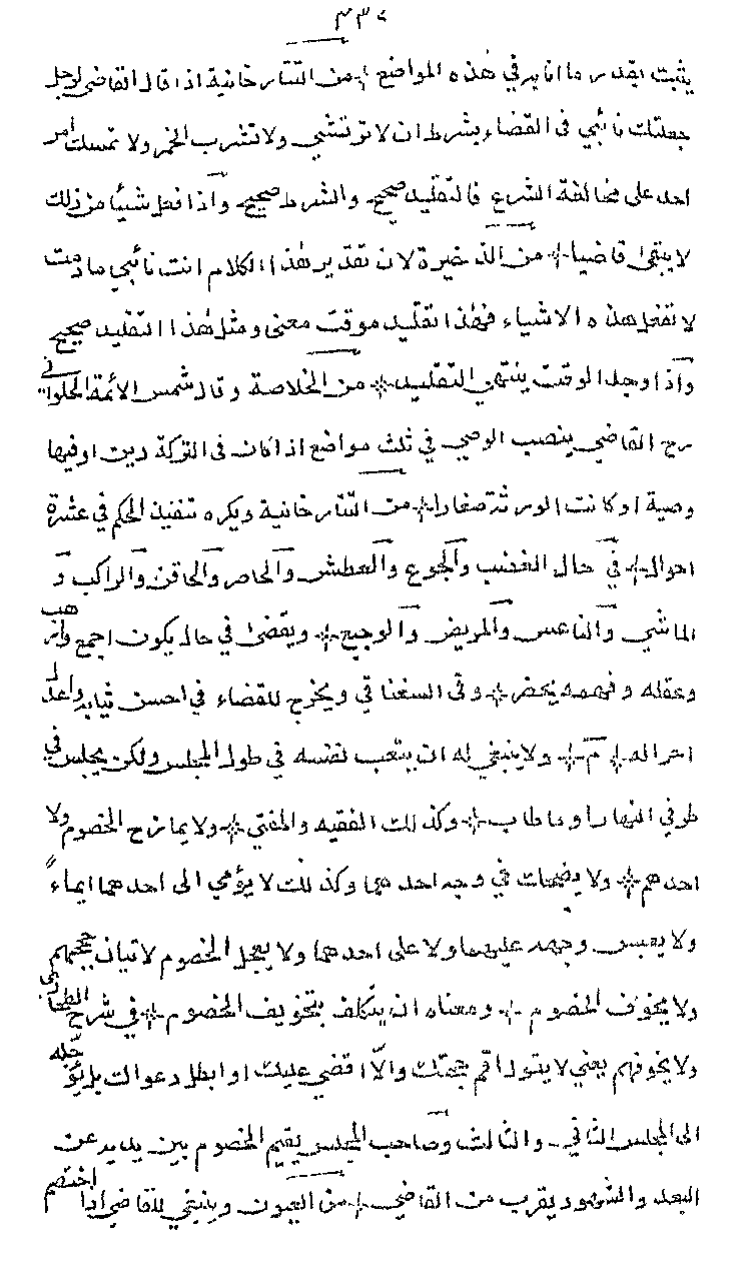 ٣٣٢
يثبت بقدر ما انابه في هذه المواضع * من التتارخانية اذا قال القاضي لرجل
جعلتك نائبي في القضاء بشرط ان لا ترتشي ولا تشرب الخمر ولا تمسك امر
احد على مخالفة الشرع فالتقليد صحيح والشرط صحيح واذا فعل شيأ من ذلك
لا يبقى قاضيا * من الذخيرة لان تقدير هذا الكلام انت نائبي ما دمت
لا تفعل هذه الاشياء فهذا تقليد موقت معنى ومثل هذا التقليد صحيح
واذا وجد الوقت ينتهي التقليد * من الخلاصة وقال شمس الائمة الحلواني
رح القاضي ينصب الوصي في ثلث مواضع اذا كان في التركة دين او فيها
وصية او كانت الورثة صغارا * من التتارخانية ويكره تنفيذ الحكم في عشرة
احوال * في حال الغضب والجوع والعطش والحاصر والحاقن والراكب و
الماشي والناعس والمريض والوجيع * ويقضى في حال يكون اجمع
وعقله وفهمه يحضر * وفى السغناقي ويخرج للقضاء في احسن ثيابه واعدل
احواله * م * ولا ينبغي له ان يتعب نفسه في طول المجلس ولكن يجلس في
طرفي النهار او ما طاب * وكذلك الفقيه والمفتي * ولا يمازح الخصوم ولا
احدهم * ولا يضحك في وجه احدهما وكذلك لا يؤمي الى احدهما ايماءً
ولا يعبس وجهه عليهما ولا على احدهما ولا يعجل الخصوم لاتيان حججهم
ولا يخوف الخصوم * ومعناه ان يتكلف بتخويف الخصوم * في شرح الطحاوي
ولا يخوفهم يعني لا يقول اقم حجتك والّا اقضي عليك او ابطل دعواك بل يؤجله
الى المجلس الثاني والثالث وصاحب المجلس يقيم الخصوم بين يديه عن
البعد والشهود يقرب من القاضي * من العيون وينبغي للقاضي اذا اختصم